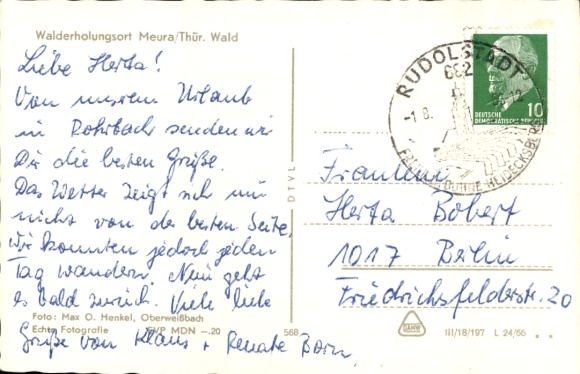 Walderholungsort Meura/Thür. Wald
Liebe Herta!
Von unserem Urlaub
in Rohrbach senden wir
Dir die besten Grüße.
Das Wetter zeigt sich nur
nicht von der besten Seite,
wir konnten jedoch jeden
Tag wandern. Nun geht
es bald zurück. Viele liebe
Grüße von Klaus + Renate Born.
Foto: Max O. Henkel, Oberweißbach
Echte Fotografie EVP MDN –.20
568
DTVL
RUDOLSTADT
682
-1.8.
FREILICHTBÜHNE HEIDECKSBURG
10
DEUTSCHE
DEMOKRATISCHE REPUBLIK
Fräulein
Herta Bobert
1017 Berlin
Friedrichsfelderstr. 20
III/18/197 L 24/66